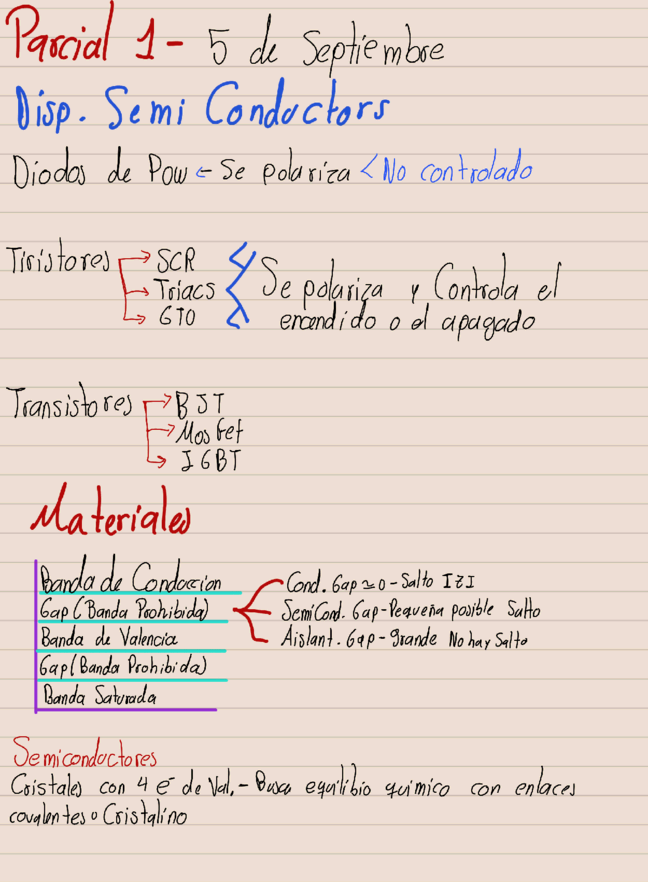 Parcial 1 - 5 de Septiembre
Disp. Semi Conductors
Diodos de Pow ← Se polariza < No controlado
Tiristores → SCR
→ Triacs
→ GTO
Se polariza y Controla el
encendido o el apagado
Transistores → BJT
→ Mosfet
→ IGBT
Materiales
Banda de Conduccion
Gap (Banda Prohibida)
Banda de Valencia
Gap (Banda Prohibida)
Banda Saturada
Cond. Gap ≃ 0 - Salto
SemiCond. Gap - Pequeña posible Salto
Aislant. Gap - grande No hay Salto
Semiconductores
Cristales con 4 e⁻ de Val. - Busca equilibio quimico con enlaces
covalentes o Cristalino